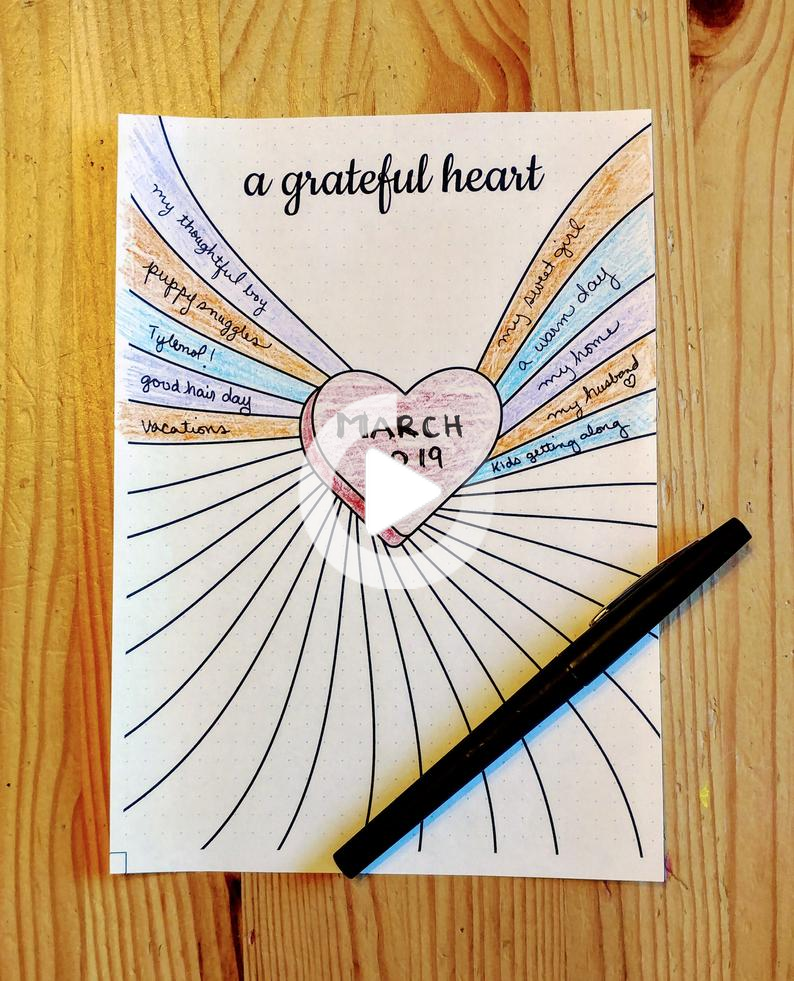 a grateful heart
my thoughtful boy
puppy snuggles
Tylenol!
good hair day
vacations
MARCH
2019
my sweet girl
a warm day
my home
my husband ♡
kids getting along